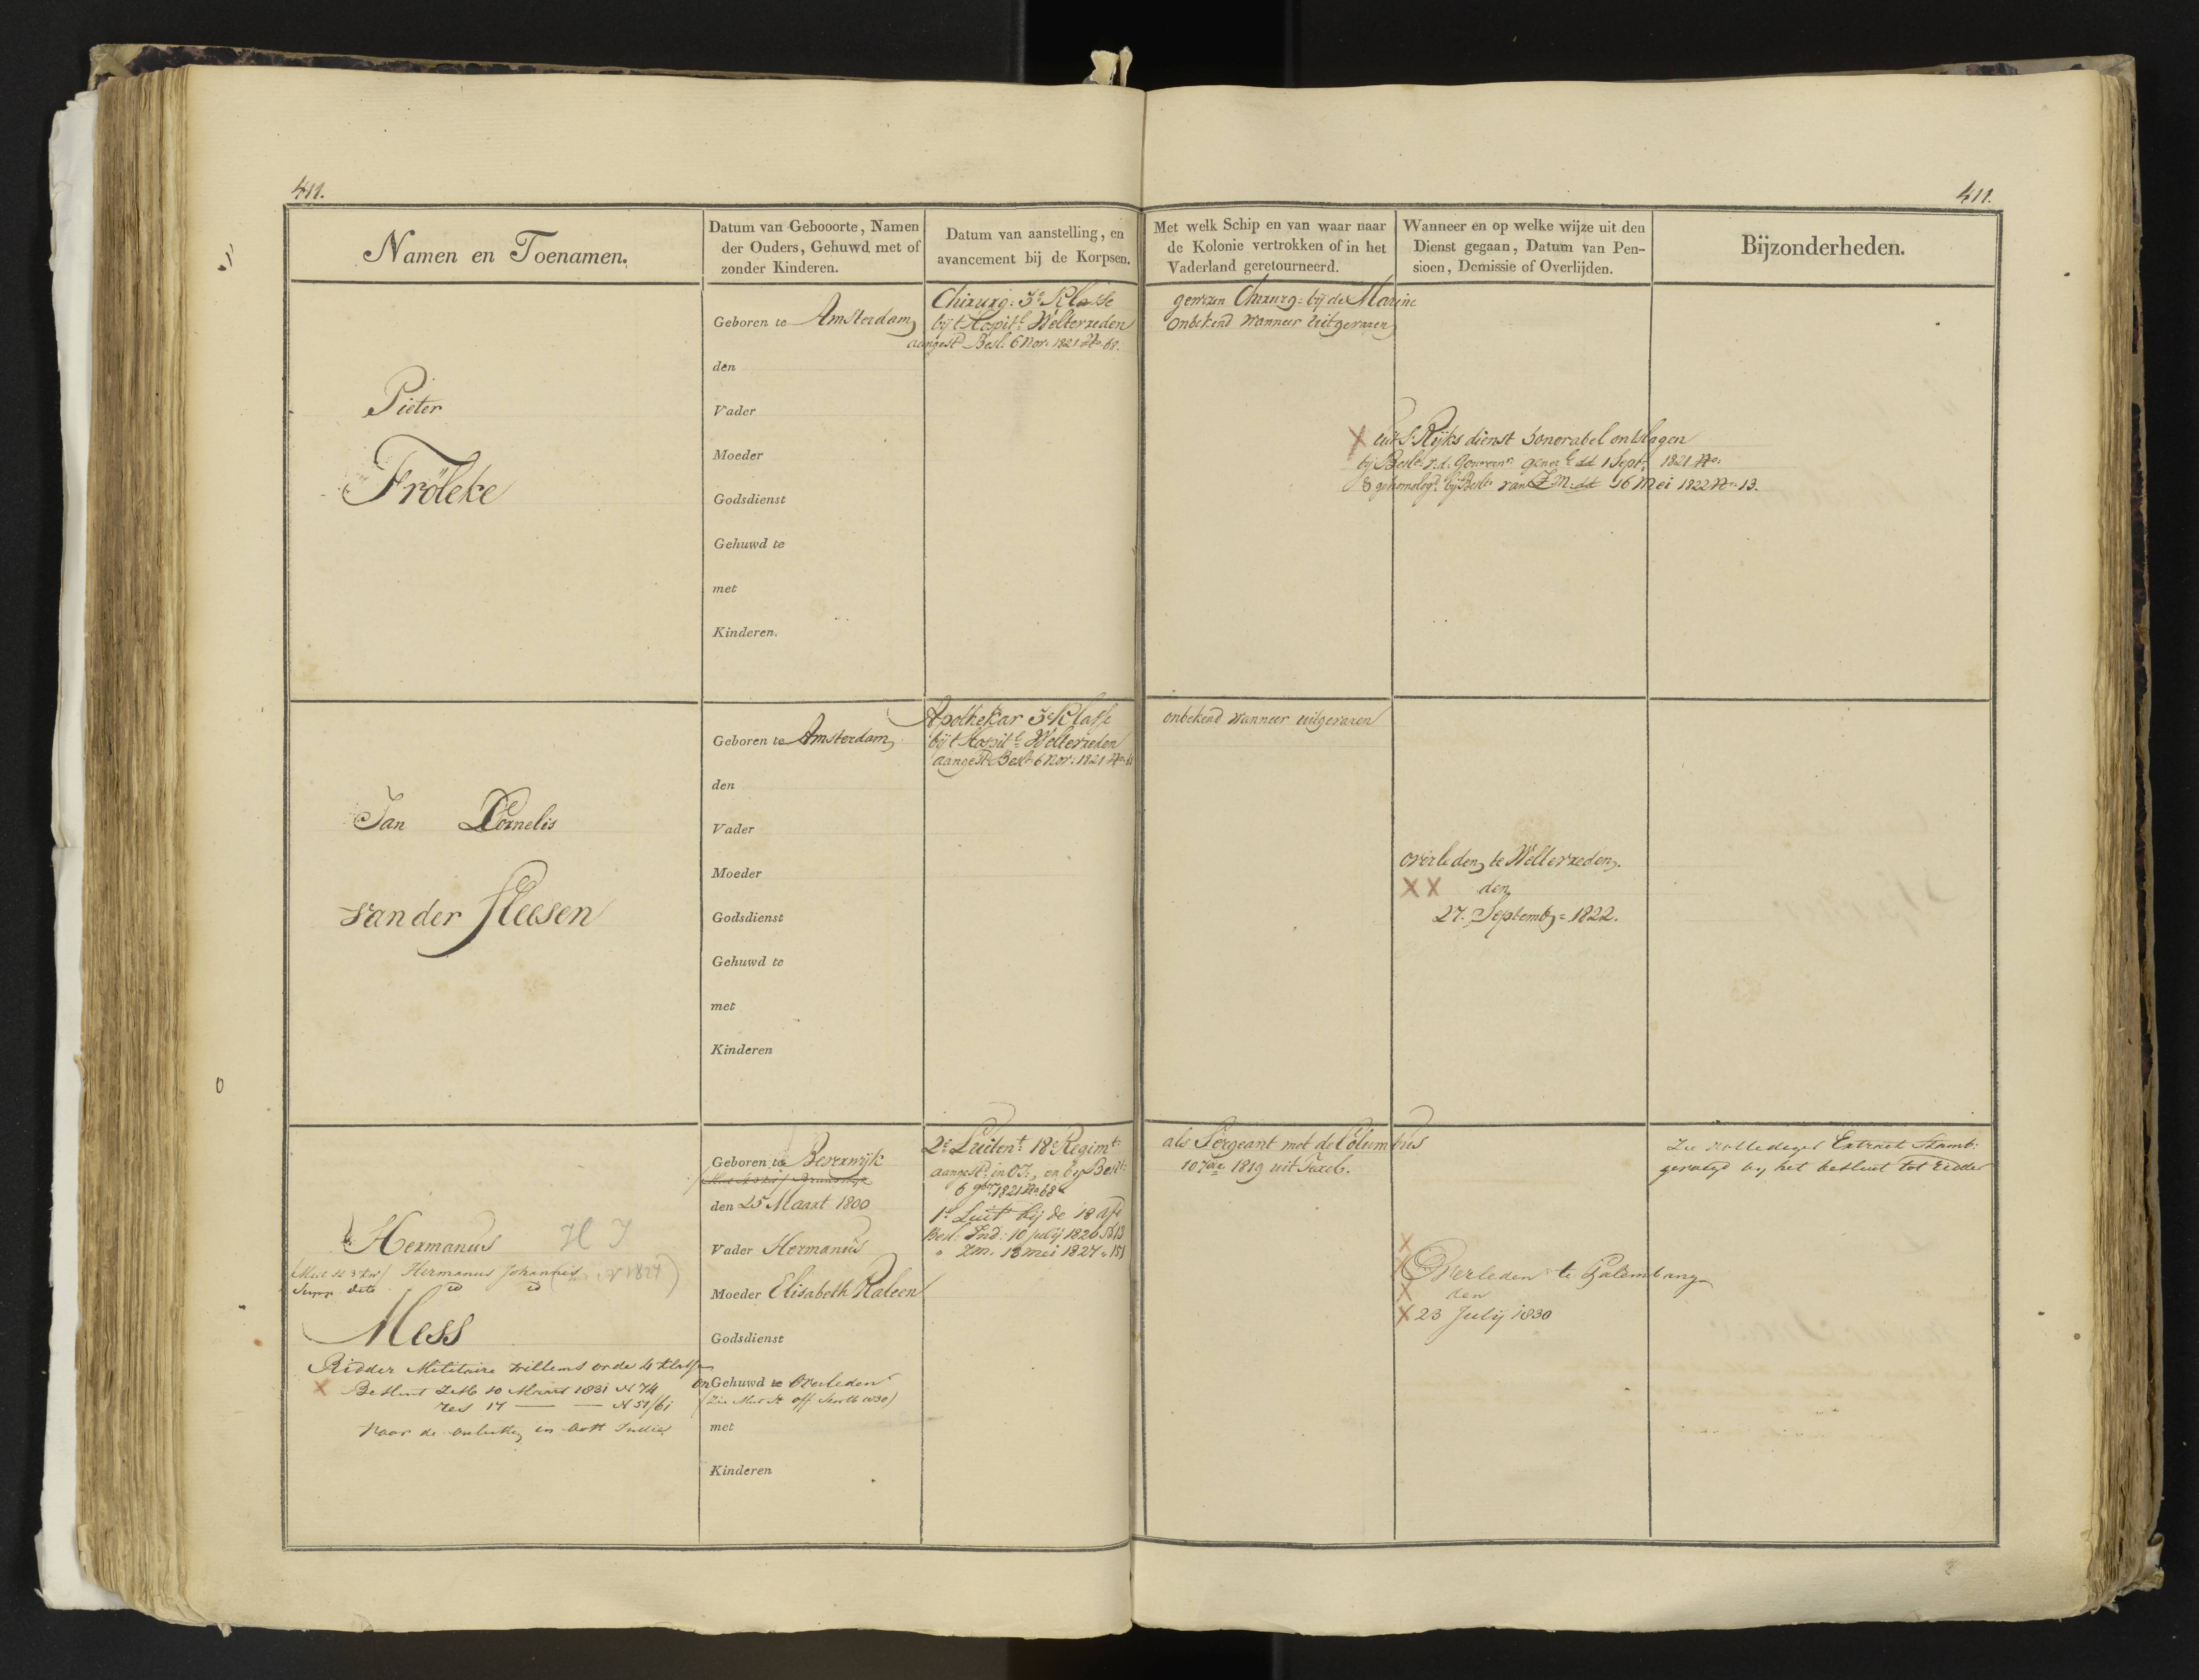 411.
411.
Namen en Toenamen.
Datum van Gebooorte, Namen
der Ouders, Gehuwd met of
zonder Kinderen.
Datum van aanstelling, en
avancement bij de Korpsen.
Met welk Schip en van waar naar
de Kolonie vertrokken of in het
Vaderland geretourneerd.
Wanneer en op welke wijze uit den
Dienst gegaan, Datum van Pen-
sioen, Demissie of Overlijden.
Bijzonderheden.
Pieter
Fröleke
Geboren te Amsterdam
den
Vader
Moeder
Godsdienst
Gehuwd te
met
Kinderen.
Chirurg: 3e Klasse
bij t Hospitl Welterreden
aangestd Besl. 6 Nov. 1821 No 68.
gewezen Chirurg: bij de Marine
onbekend wanneer uitgevaren
X uit S Rijks dienst honorabel ontslagen
bij Beslt v.d. Gouvernr generl dd 1 Sept. 1821 No
8 gehomologd bij Beslt van Z.M. dd 16 Mei 1822 No 13.
Jan Cornelis
van der Heesen
Geboren te Amsterdam
den
Vader
Moeder
Godsdienst
Gehuwd te
met
Kinderen
Apotheker 3e Klasse
bij t Hospitl Welterreden
aangestd Beslt 6 Nov. 1821 No 68
onbekend wanneer uitgevaren
overleden te Welterreden
XX den
27. Septemb = 1822.
Hermanus H J
Hermanus Johannis 1827)
id id
Mess
Ridder Militaire Willems orde 4 Klasse
X Besluit 10 Maart 1831 N 74
Res 17 — — N 51/61
Voor de in Oost Indie
Geboren te Beverwijk
den 25 Maart 1800
Vader Hermanus
Moeder Elisabeth Raleen
Godsdienst
OnGehuwd te Overleden
1830)
met
Kinderen
2e Luitent 18e Regimt
aangestd in O.I., en bij Beslt
6 9ber 1821 No 68
1e Luit bij de 18 Afd
Besl. Ind: 10 Julij 1826 N 13
" ZM. 13 mei 1827 " 151
als Sergeant met de Columbus
10 1819 uit Texel.
X
X Overleden te Palembang
X den
X 23 Julij 1830
Zie volledigst Extract Stamb:
gevoegd bij het besluit tot Ridder